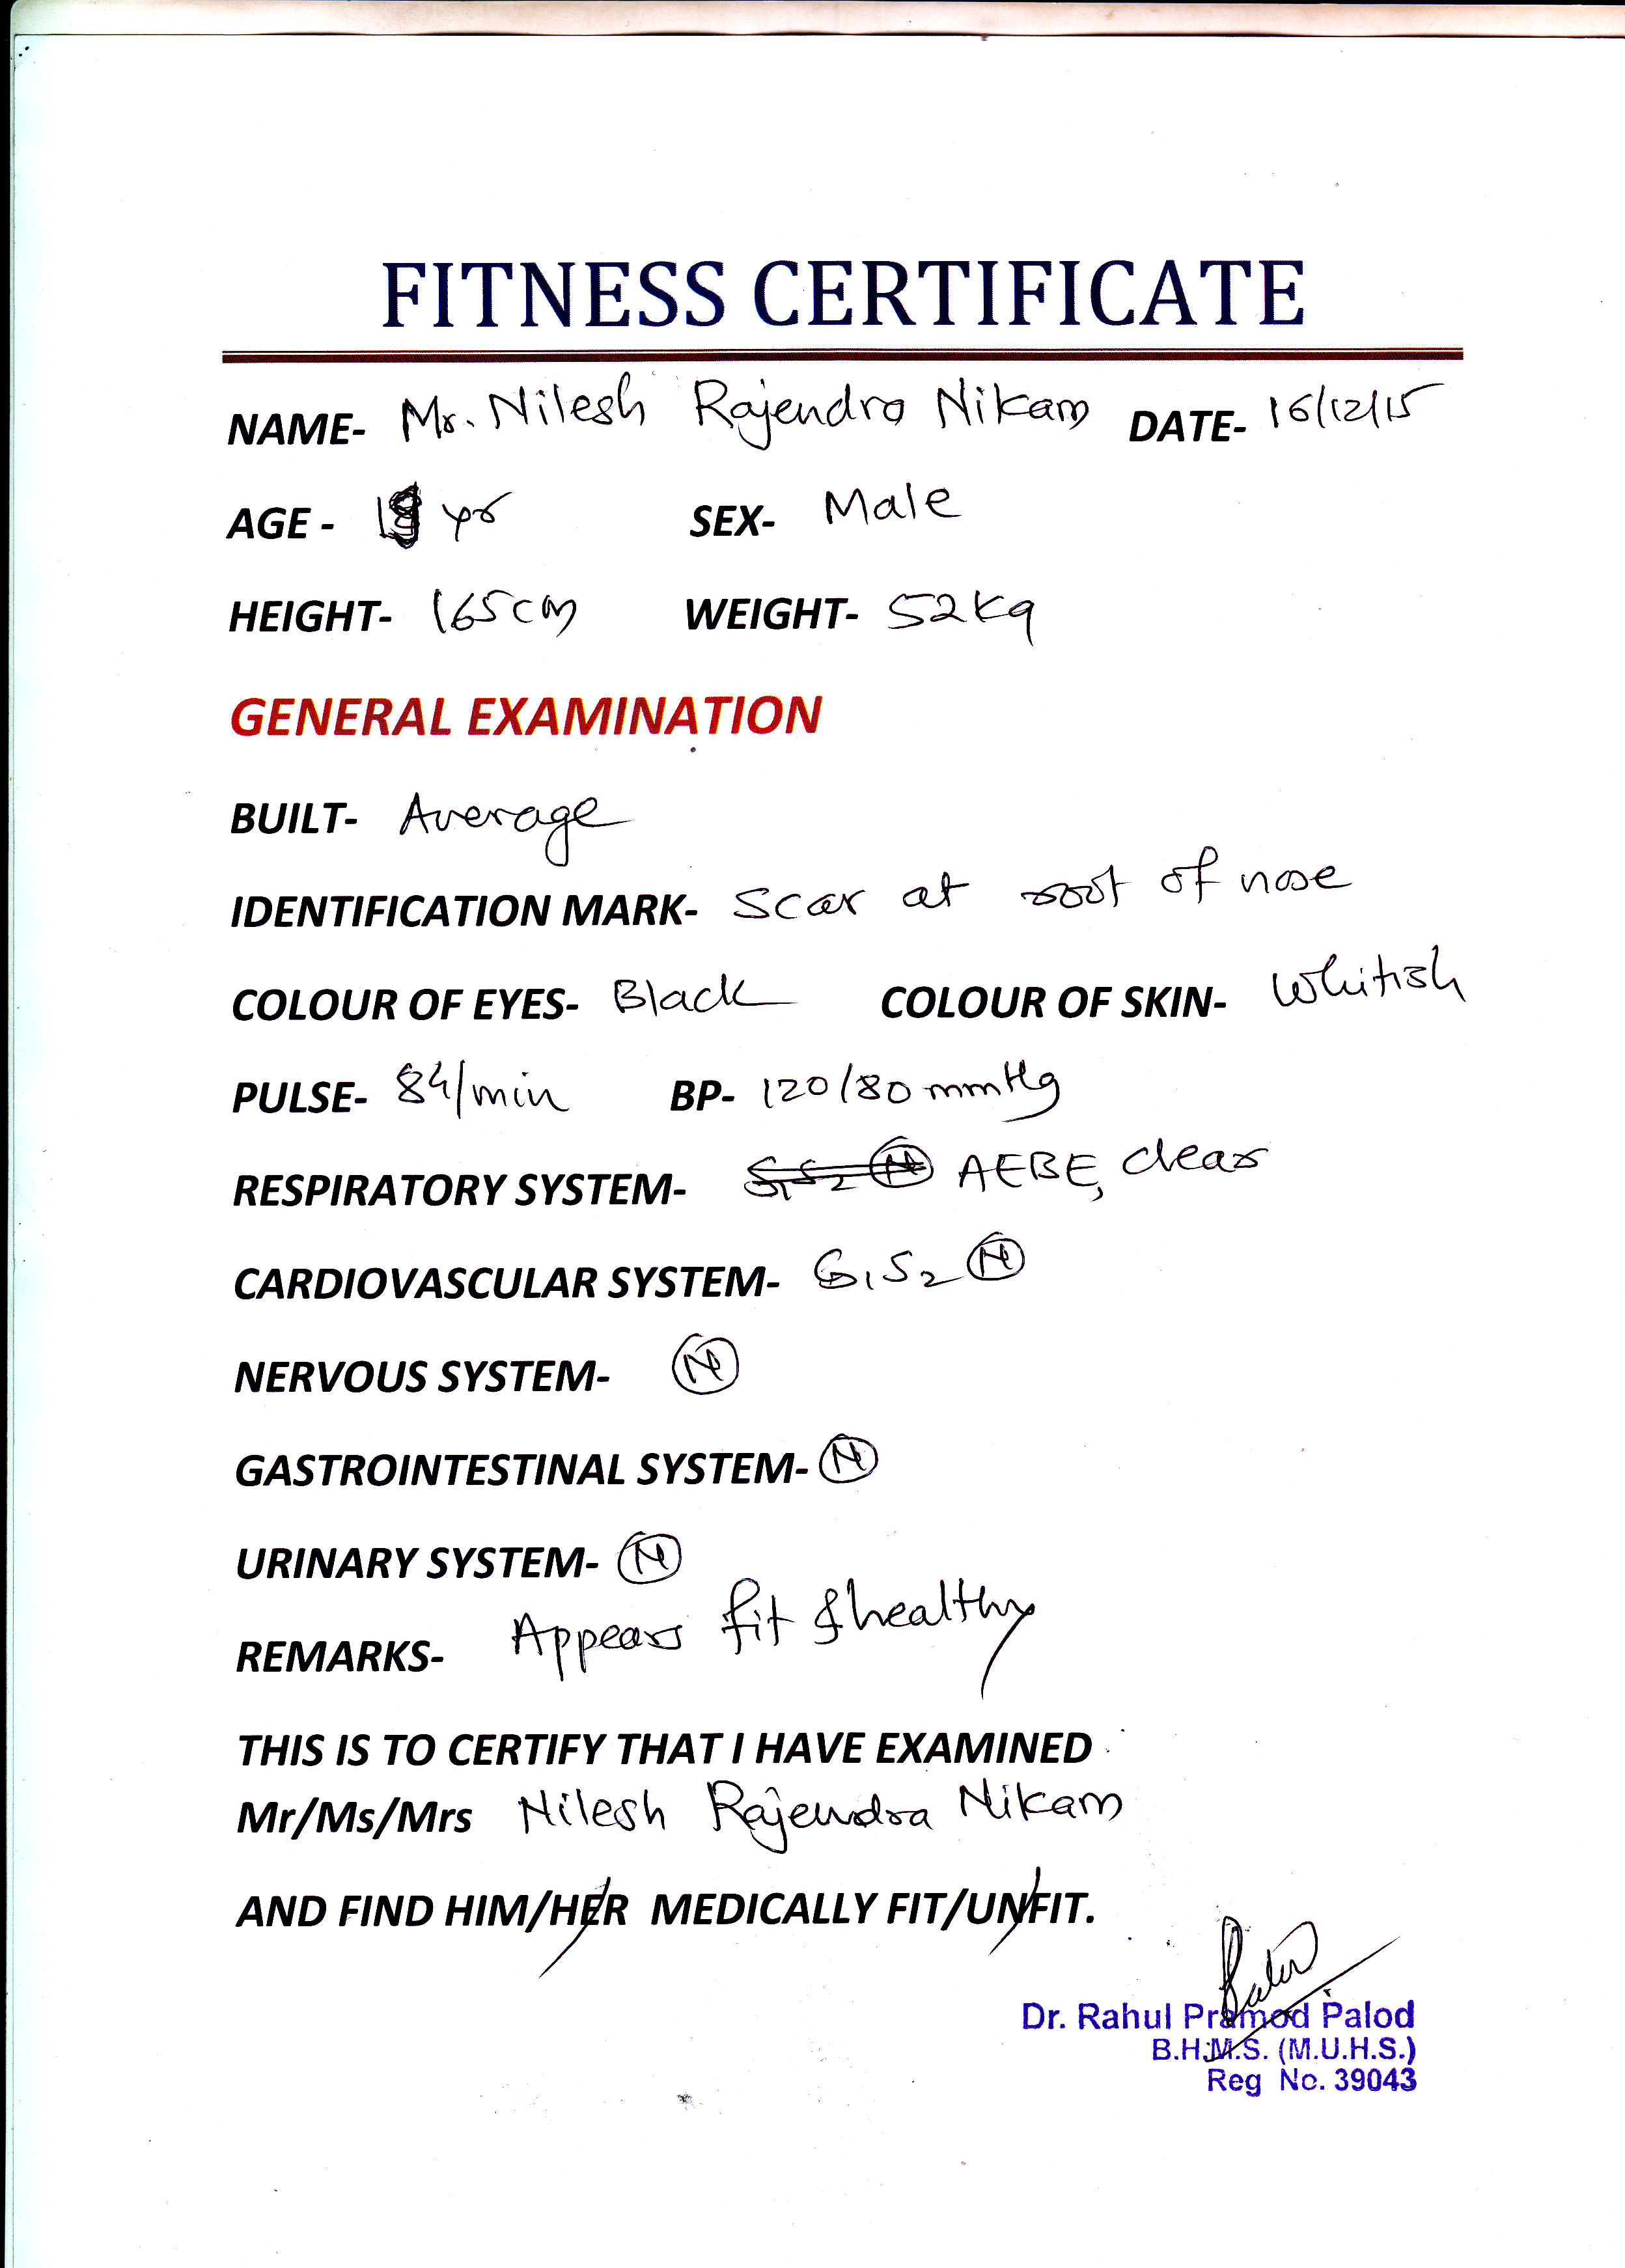 FITNESS CERTIFICATE
NAME- Mr. Nilesh Rajendra Nikam DATE- 16/12/15
AGE - yr SEX- Male
HEIGHT- 165cm WEIGHT- 52kg
GENERAL EXAMINATION
BUILT- Average
IDENTIFICATION MARK- Scar at root of nose
COLOUR OF EYES- Black COLOUR OF SKIN- Whitish
PULSE- 84/min BP- 120/80 mmHg
RESPIRATORY SYSTEM- S1S2 N AEBE, clear
CARDIOVASCULAR SYSTEM- S1S2 N
NERVOUS SYSTEM- N
GASTROINTESTINAL SYSTEM- N
URINARY SYSTEM- N
REMARKS- Appears fit & healthy
THIS IS TO CERTIFY THAT I HAVE EXAMINED
Mr/Ms/Mrs Nilesh Rajendra Nikam
AND FIND HIM/HER MEDICALLY FIT/UNFIT.
Dr. Rahul Pramod Palod
B.H.M.S. (M.U.H.S.)
Reg No. 39043